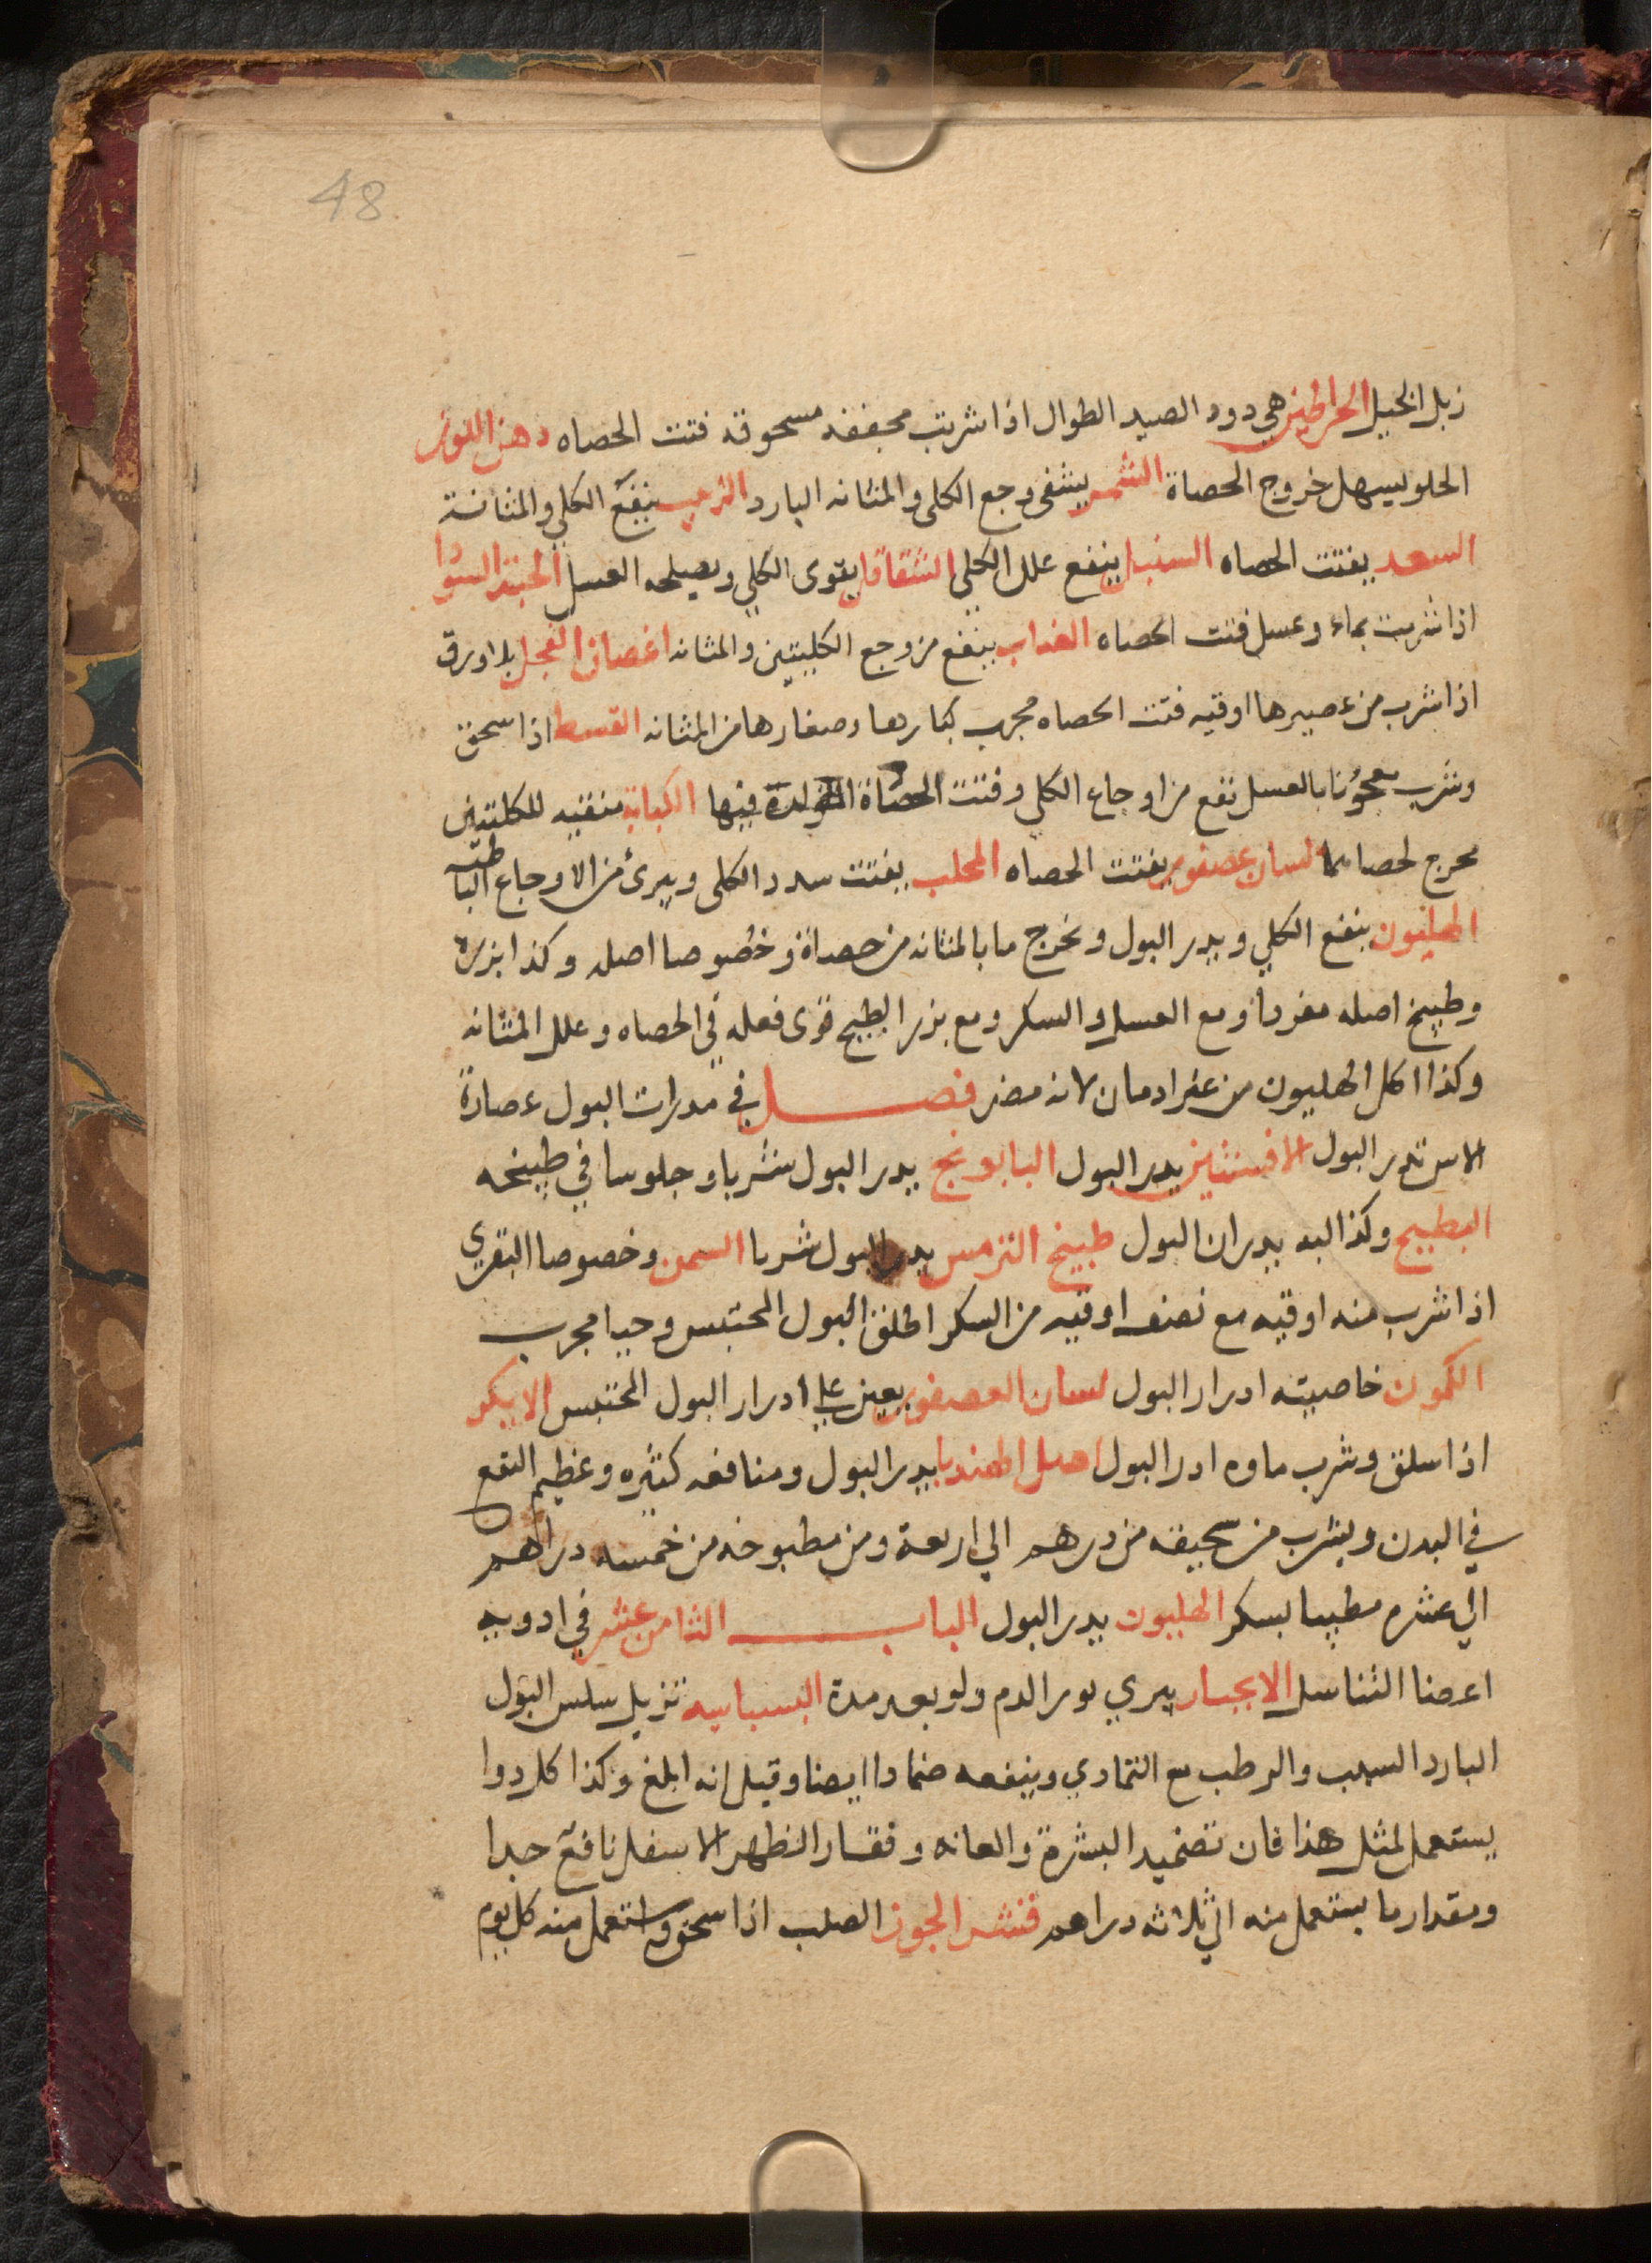 48
زبل الخيل الخراطين هي دود الصيد الطوال اذا شربت مجففه مسحوقه فتت الحصاه دهن اللوز
الحلو يسهل خروج الحصاة الشمر يشفى وجع الكلى والمثانه البارد الزبيب ينفع الكلي والمثانة
السعد يفتت الحصاه السنبل ينفع علل الكلى الشقاقل يقوى الكلي ويصلحه العسل الحبة السودا
اذا شربت بماء وعسل فتت الحصاه العناب ينفع من وجع الكليتين والمثانه اغصان الفجل بلا ورق
اذا شرب من عصيرها اوقيه فتت الحصاه مجرب كبارها وصغارها من المثانه القسط اذا سحق
وشرب معجونا بالعسل نفع من اوجاع الكلي وفتت الحصاة المتولدة فيها الكبابة منقيه للكليتين
مخرج لحصاهما لسان عصفور يفتت الحصاه المحلب يفتت سدد الكلى ويبرئ من الاوجاع الباطنه
الهليون ينفع الكلي ويدر البول ويخرج ما بالمثانه من حصاة وخصوصا اصله وكذا بزره
وطبيخ اصله مفردا ومع العسل والسكر ومع بزر البطيخ قوى فعله في الحصاه وعلل المثانه
وكذا اكل الهليون من غير ادمان لانه مضر فصل في مدرات البول عصارة
الاس تدر البول الافسنتين يدر البول البابونج يدر البول شربا وجلوسا في طبيخه
البطيخ وكذا لبه يدران البول طبيخ الترمس يدر البول شربا السمن وخصوصا البقري
اذا شرب منه اوقيه مع نصف اوقيه من السكر اطلق البول المحتبس وحيا مجرب
الكمون خاصيته ادرار البول لسان العصفور يعين علي ادرار البول المحتبس الايكر
اذا سلق وشرب ماوه ادر البول اصل الهندبا يدر البول ومنافعه كثيره وعظيم النفع
في البدن ويشرب من سحيقه من درهم الي اربعة ومن مطبوخه من خمسه دراهم
الي عشره مطيبا بسكر الهليون يدر البول الباب الثامن عشر في ادويه
اعضا التناسل الانجبار يبري بول الدم ولو بعد مدة البسباسه تزيل سلس البول
البارد السبب والرطب مع التمادي وينفعه ضمادا ايضا وقيل انه ابلغ وكذا كل دوا
يستعمل لمثل هذا فان تضميد البشرة والعانه وفقار الظهر الاسفل نافع جدا
ومقدار ما يستعمل منه الي ثلاثه دراهم قشر الجوز الصلب اذا سحق واستعمل منه كل يوم